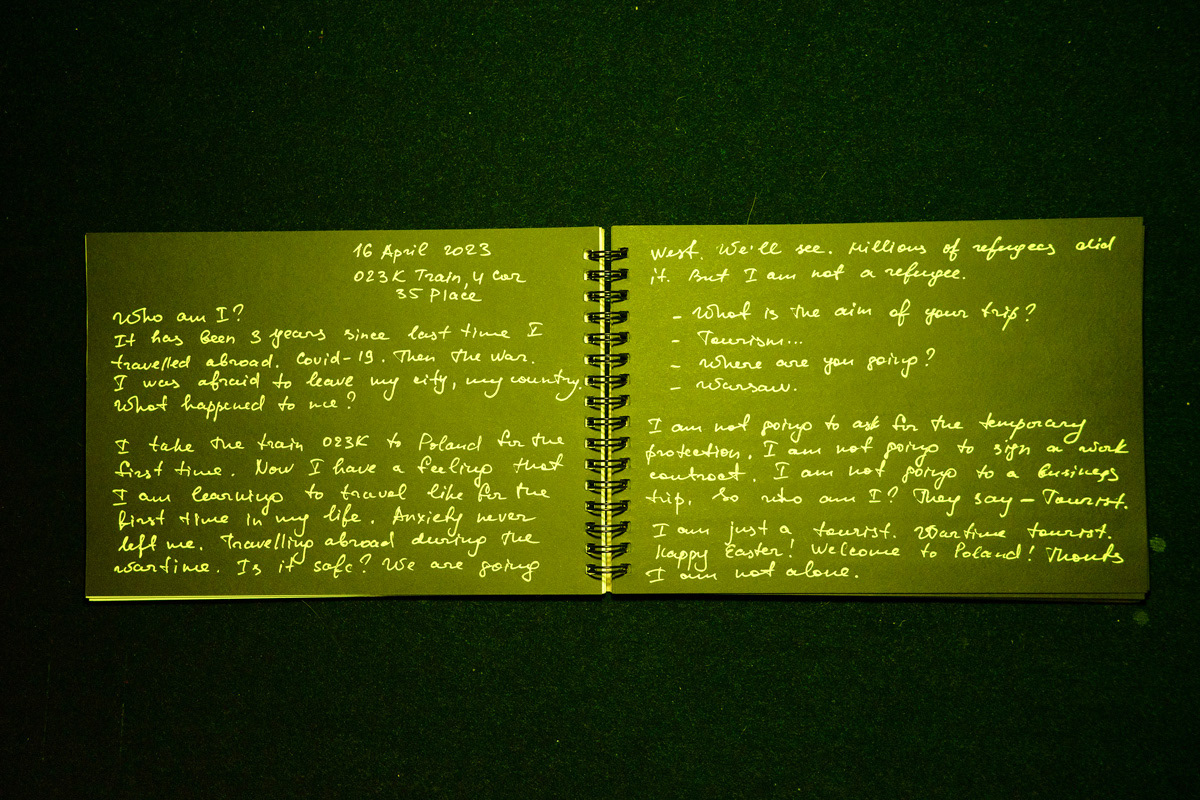 16 April 2023
023K Train, 4 car
35 Place
Who am I?
It has been 3 years since last time I
travelled abroad. Covid-19. Then the war.
I was afraid to leave my city, my country.
What happened to me?
I take the train 023K to Poland for the
first time. Now I have a feeling that
I am learning to travel like for the
first time in my life. Anxiety never
left me. Travelling abroad during the
wartime. Is it safe? We are going
West. We'll see. Millions of refugees did
it. But I am not a refugee.
- What is the aim of your trip?
- Tourism...
- Where are you going?
- Warsaw.
I am not going to ask for the temporary
protection. I am not going to sign a work
contract. I am not going to a business
trip. So who am I? They say – Tourist.
I am just a tourist. Wartime tourist.
Happy Easter! Welcome to Poland! Thanks
I am not alone.